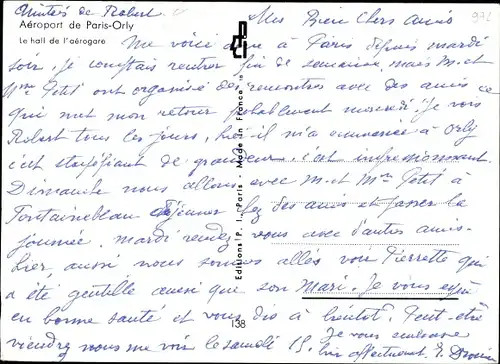 Amitiés de Robert
Aéroport de Paris-Orly
Le hall de l'aérogare
972
Mes Bien Chers Amis
Me voici à Paris depuis mardi
soir, je comptais rentrer fin de semaine, mais M. et
Mme Petit ont organisé des rencontres avec des amis ce
qui met mon retour probablement mercredi. Je vois
Robert tous les jours, hier il m'a emmenée à Orly
c'est stupéfiant de grandeur, c'est impressionnant.
Dimanche nous allons avec M. et Mme Petit à
Fontainebleau déjeuner chez des amis et passer la
journée. Mardi rendez-vous avec d'autres amis.
Hier, aussi nous sommes allés voir Pierrette qui
a été gentille ainsi que son Mari. Je vous espère
en bonne santé et vous dis à bientôt. Peut-être
viendrez nous me voir le samedi 15, bien affectueust.
Je vous embrasse
Editions P. I. - Paris - Made in France
138